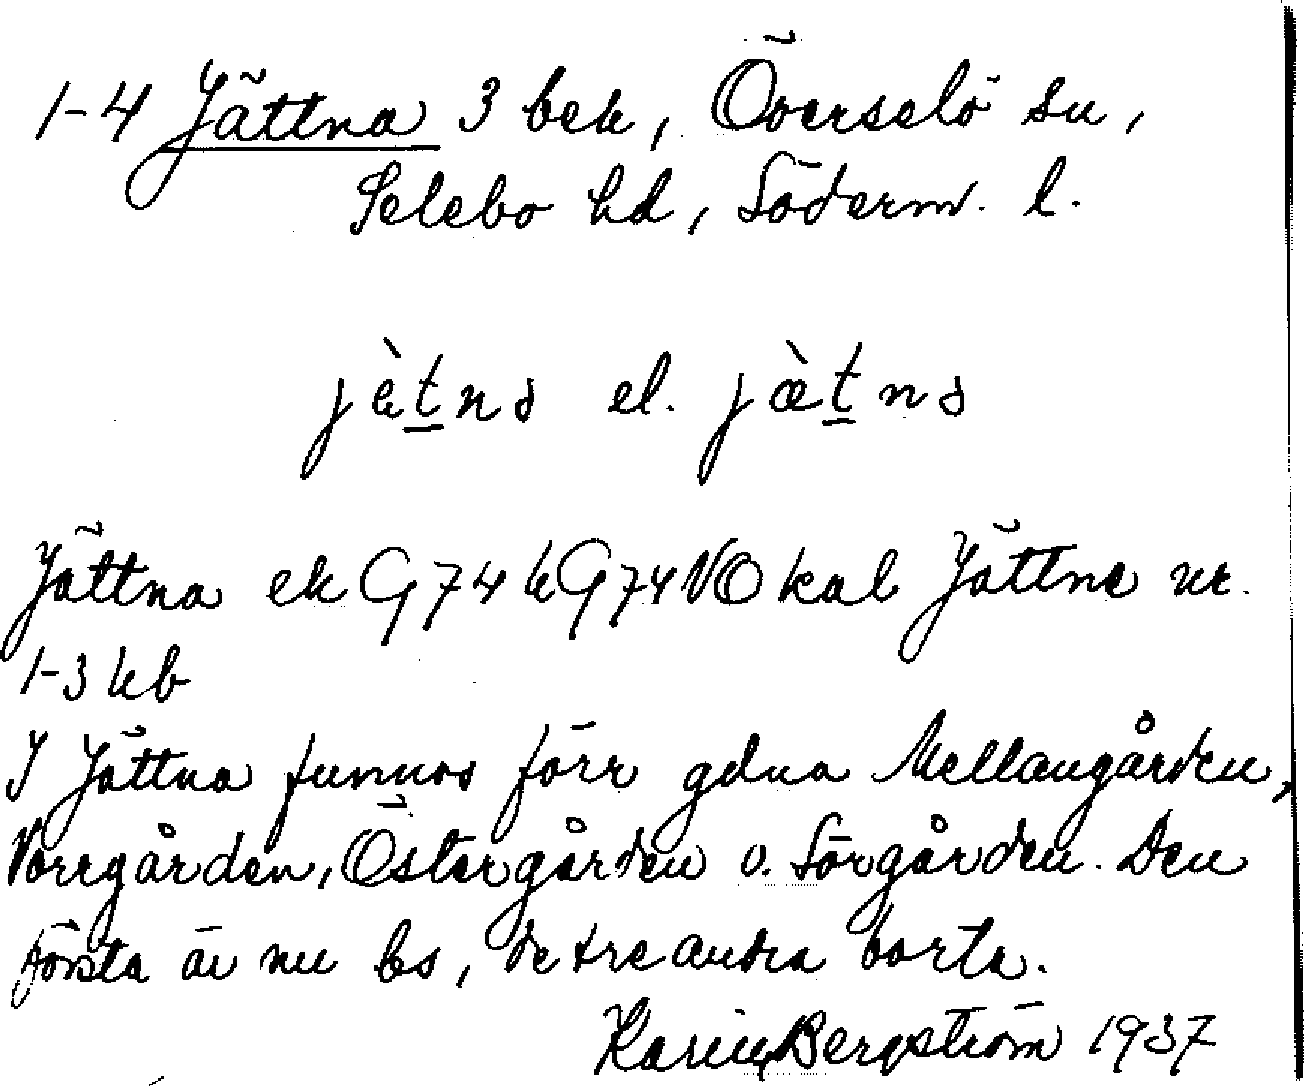 1-4 Jättna 3 bek, Överselö sn,
Selebo hd, Söderm. l.
jὲt̲nə el. jæ̀t̲nə
Jättna ek G 74 k G 74 NO kal Jättna nr.
1-3 kb
I Jättna funnos förr gdna Mellangården,
Norrgården, Östergården o. Sörgården. Den
första är nu bs, de tre andra borta.
Karin Bergström 1937